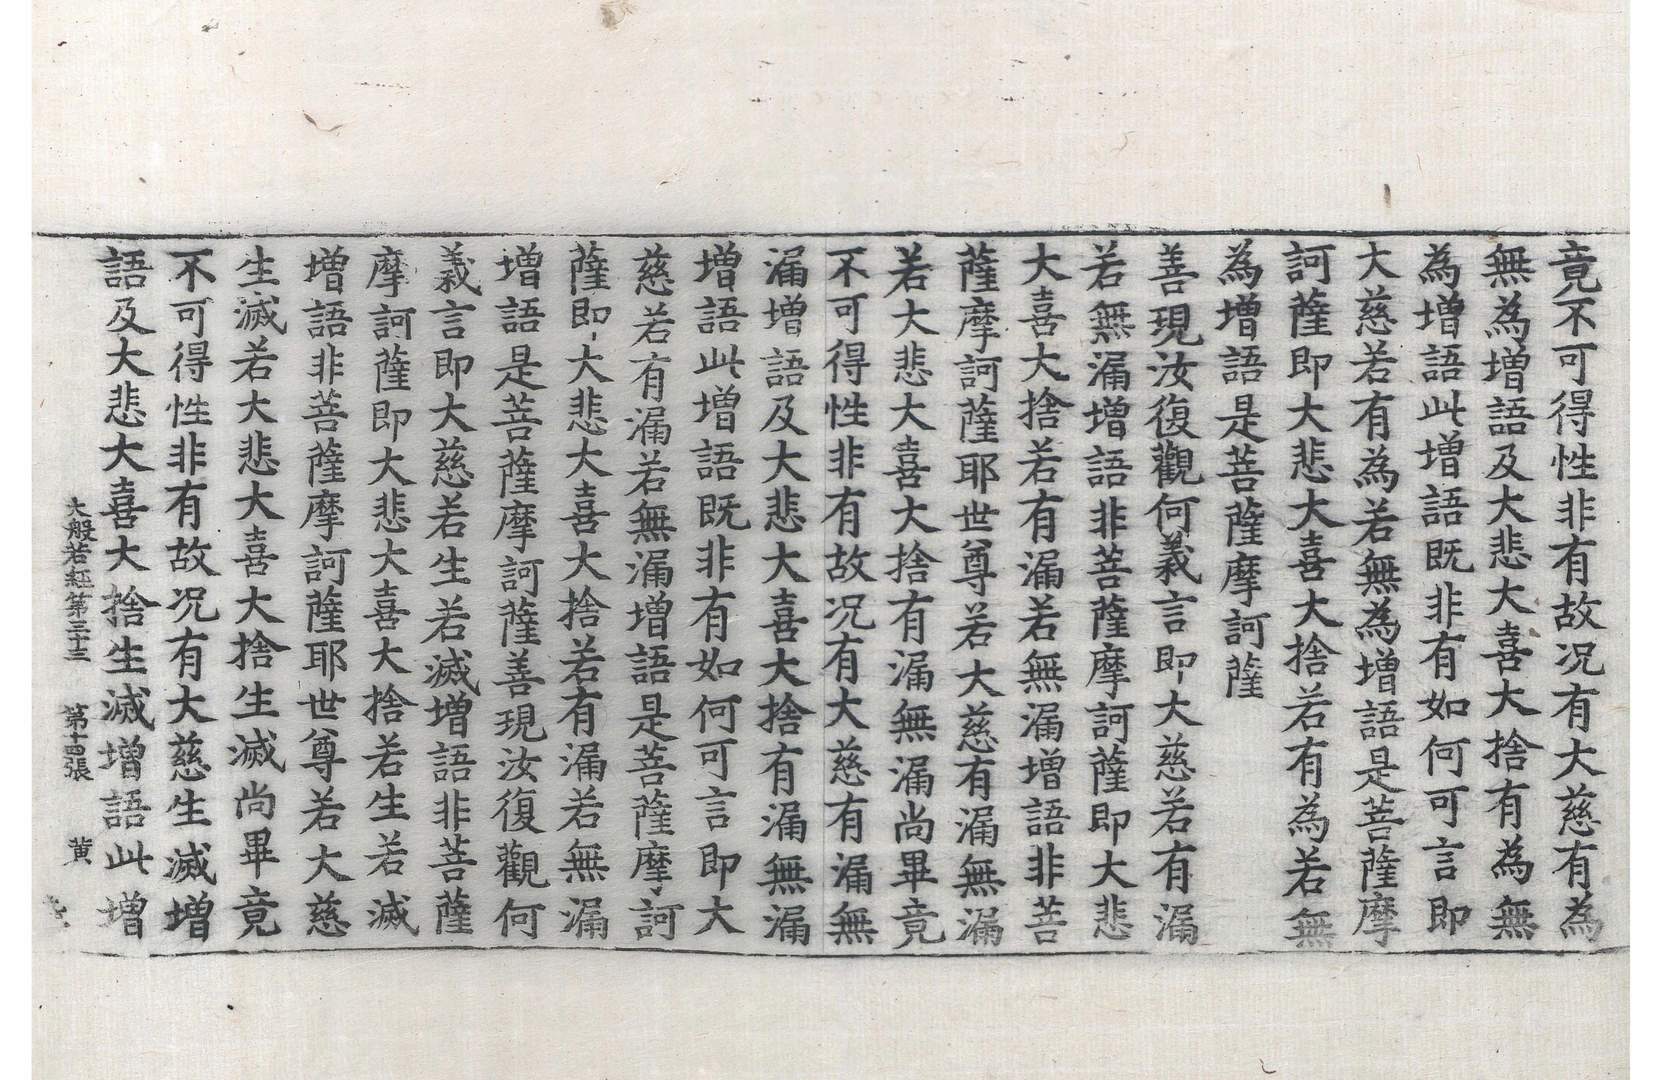 竟不可得性非有故况有大慈有為
無為增語及大悲大喜大捨有為無
為增語此增語既非有如何可言即
大慈若有為若無為增語是菩薩摩
訶薩即大悲大喜大捨若有為若無
為增語是菩薩摩訶薩
善現汝復觀何義言即大慈若有漏
若無漏增語非菩薩摩訶薩即大悲
大喜大捨若有漏若無漏增語非菩
薩摩訶薩耶世尊若大慈有漏無漏
若大悲大喜大捨有漏無漏尚畢竟
不可得性非有故况有大慈有漏無
漏增語及大悲大喜大捨有漏無漏
增語此增語既非有如何可言即大
慈若有漏若無漏增語是菩薩摩訶
薩即大悲大喜大捨若有漏若無漏
增語是菩薩摩訶薩善現汝復觀何
義言即大慈若生若滅增語非菩薩
摩訶薩即大悲大喜大捨若生若滅
增語非菩薩摩訶薩耶世尊若大慈
生滅若大悲大喜大捨生滅尚畢竟
不可得性非有故况有大慈生滅增
語及大悲大喜大捨生滅增語此增
大般若經第三十三 第十四張 黄